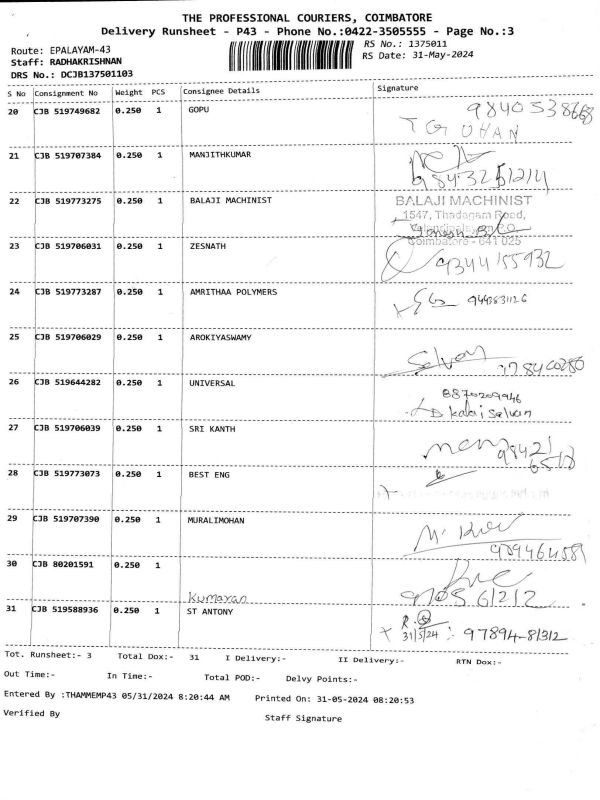 THE PROFESSIONAL COURIERS, COIMBATORE
Delivery Runsheet - P43 - Phone No.:0422-3505555 - Page No.:3
Route: EPALAYAM-43
RS No.: 1375011
Staff: RADHAKRISHNAN
RS Date: 31-May-2024
DRS No.: DCJB137501103
S No Consignment No Weight PCS Consignee Details Signature
20 CJB 519749682 0.250 1 GOPU 9840538668
21 CJB 519707384 0.250 1 MANJITHKUMAR
22 CJB 519773275 0.250 1 BALAJI MACHINIST BALAJI MACHINIST
1547, Thadagam Road,
Coimbatore - 641 025
23 CJB 519706031 0.250 1 ZESNATH 9344155932
24 CJB 519773287 0.250 1 AMRITHAA POLYMERS
25 CJB 519706029 0.250 1 AROKIYASWAMY
Selvam
26 CJB 519644282 0.250 1 UNIVERSAL 8870209946
27 CJB 519706039 0.250 1 SRI KANTH
28 CJB 519773073 0.250 1 BEST ENG
29 CJB 519707390 0.250 1 MURALIMOHAN
30 CJB 80201591 0.250 1
Kumaran
31 CJB 519588936 0.250 1 ST ANTONY
31/5/24 97894-81312
Tot. Runsheet:- 3 Total Dox:- 31 I Delivery:- II Delivery:- RTN Dox:-
Out Time:- In Time:- Total POD:- Delvy Points:-
Entered By :THAMMEMP43 05/31/2024 8:20:44 AM Printed On: 31-05-2024 08:20:53
Verified By Staff Signature